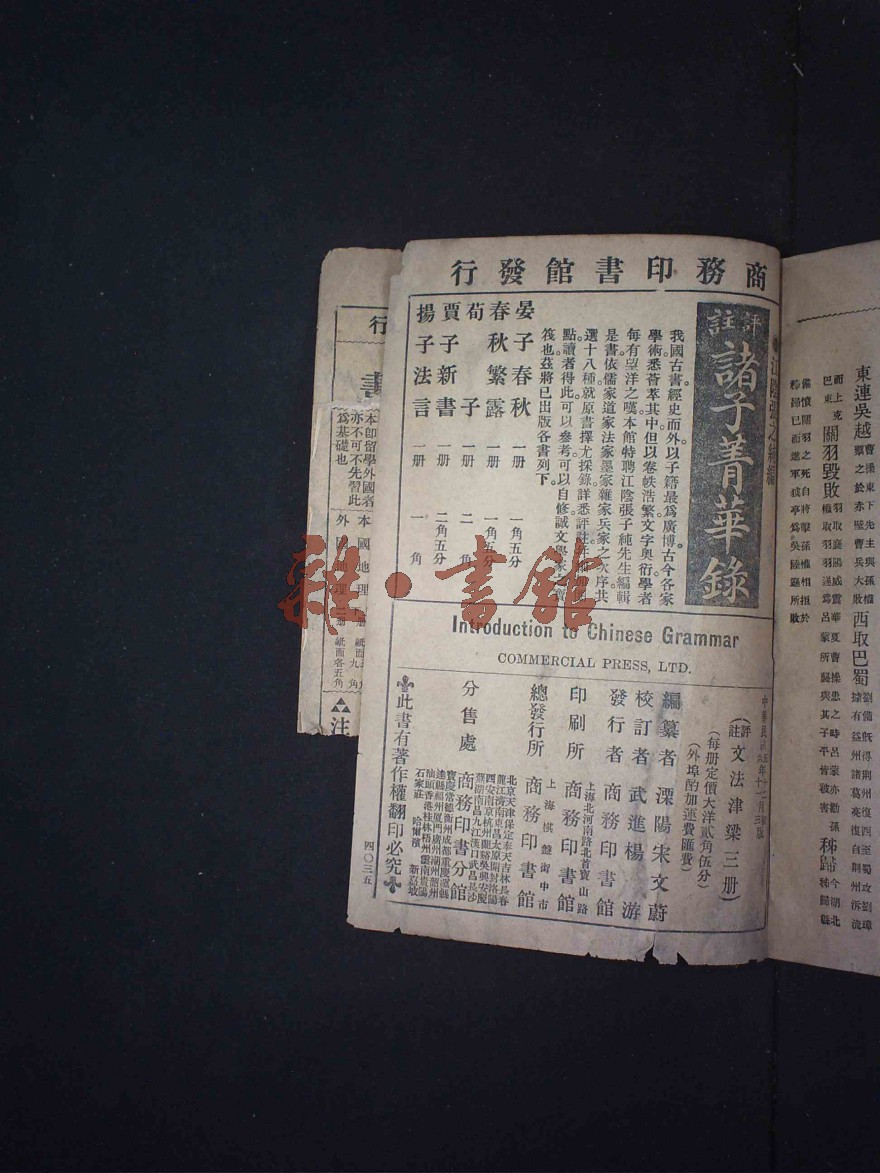 商務印書館發行
評註
諸子菁華錄
我國古書經史而外以子籍最爲廣博古今各家
學術悉薈萃其中但以卷帙浩繁文字奧衍學者
每有望洋之嘆本館特聘江陰張子純先生編輯
是書依儒家道家法家墨家雜家兵家之次序共
選十八種就原書擇尤採錄詳悉評註
點讀者得此可以參考可以自修誠文學家之寶
筏也茲將已出版各書列下
晏子春秋 一册 一角五分
春秋繁露 一册 一角五分
荀子 一册 二角
賈子新書 一册 二角五分
揚子法言 一册 一角
Introduction to Chinese Grammar
COMMERCIAL PRESS, LTD.
(評註)文法津梁三册)
(每册定價大洋貳角伍分)
(外埠酌加運費匯費)
編纂者 溧陽宋文蔚
校訂者 武進楊游
發行者 商務印書館
印刷所 上海北河南路北首寶山路 商務印書館
總發行所 上海棋盤街中市 商務印書館
分售處 商務印書分館
北京天津保定奉天吉林長春
龍江濟南東昌太原開封洛陽
西安南京杭州蘭谿吳興安慶
蕪湖南昌九江漢口武昌長沙
寶慶常德衡州成都重慶瀘縣
達縣福州廈門廣州潮州韶州
汕頭香港桂林梧州雲南貴陽
石家莊 哈爾濱 新嘉坡
此書有著作權翻印必究
四〇三五
東連吳越
關羽毀敗
西取巴蜀
秭歸
行
書
本卽留學外國者
亦不可不先習此
爲基礎也
本國地理
外國地理
紙面各五角
注
雜·書館